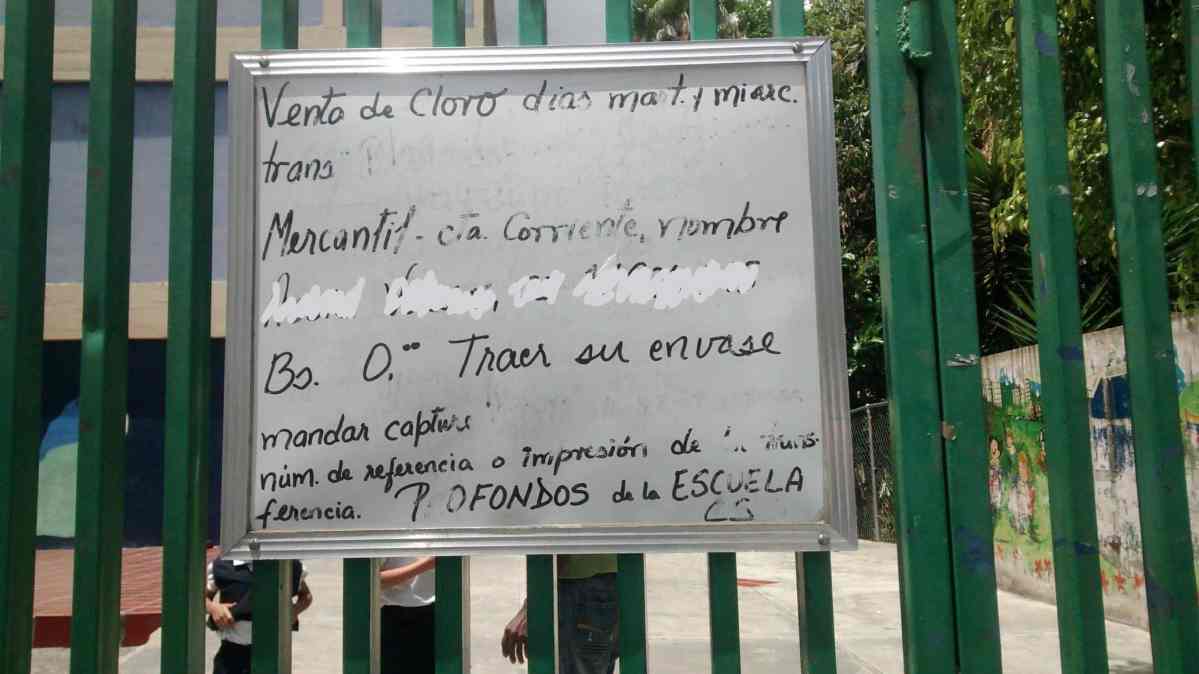 Venta de Cloro dias mart. y miarc.
trans
Mercantil - cta. Corriente, nombre
Bs. 0.°° Traer su envase
mandar capture
núm. de referencia o impresión de trans-
ferencia. P OFONDOS de la ESCUELA
CS